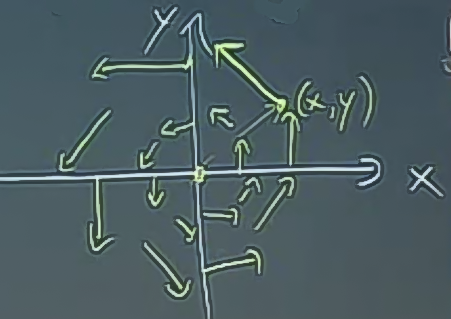 Y
(x,y)
X